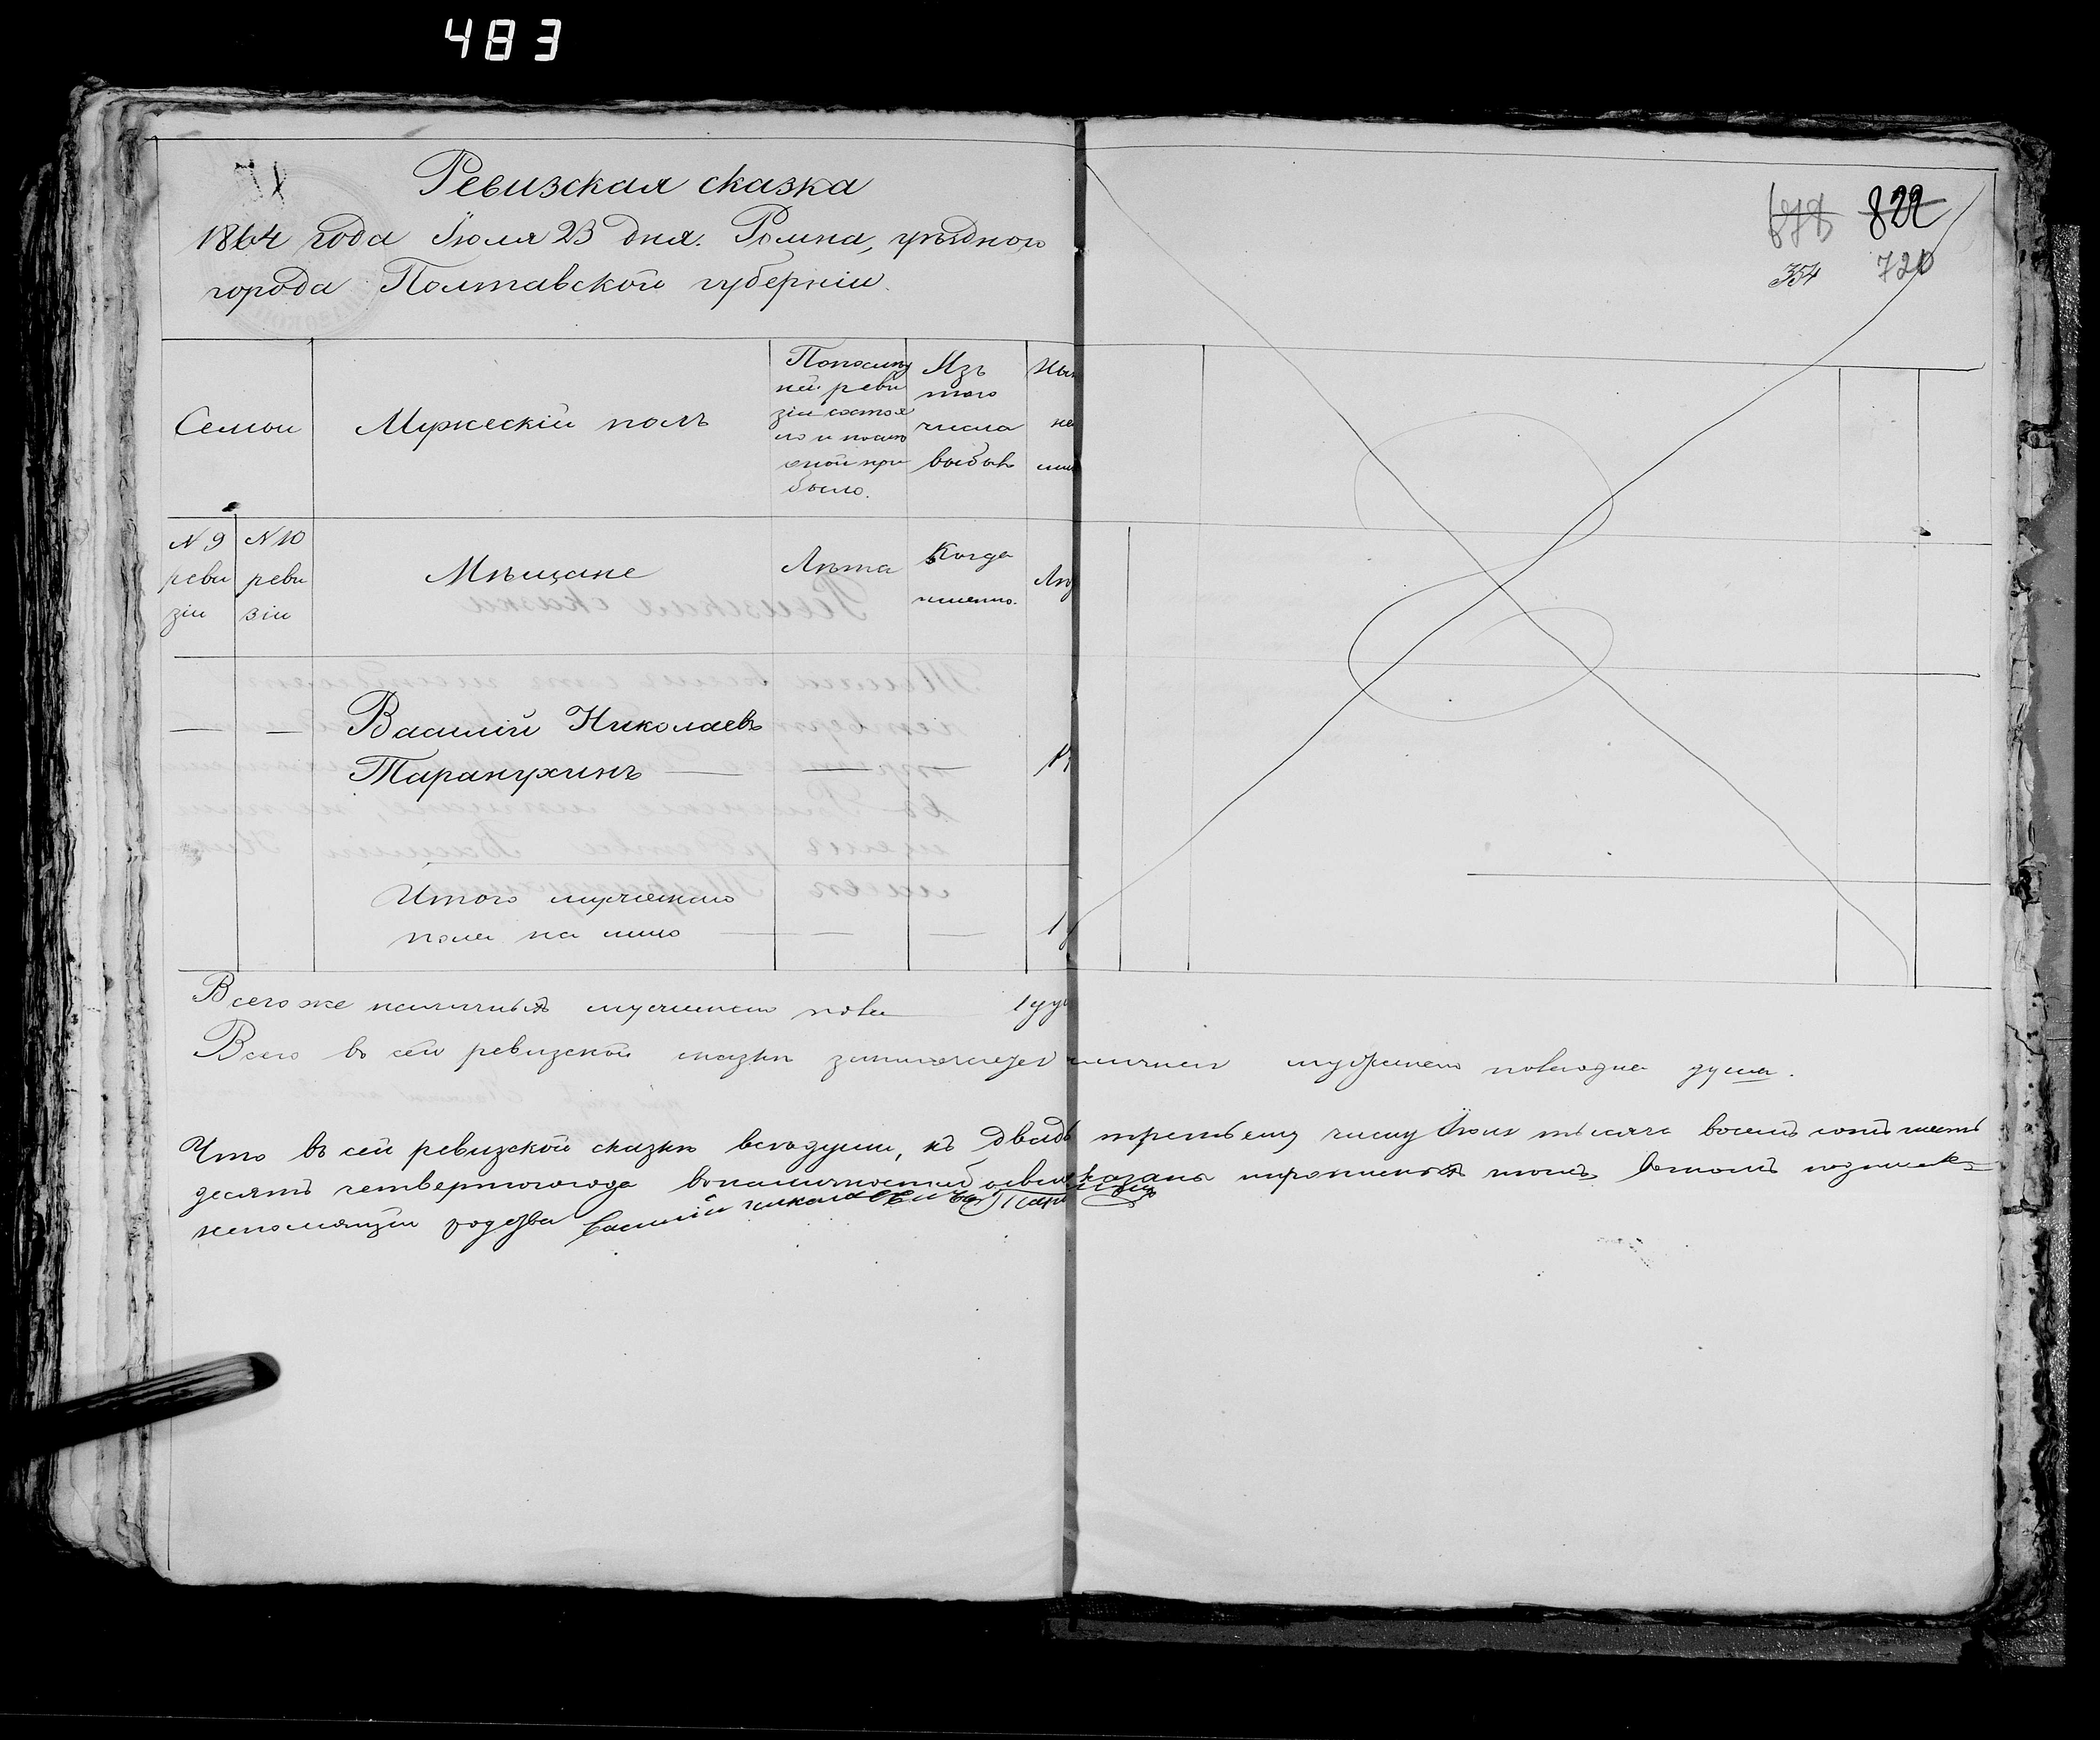 483
Ревизская сказка
1864 года Іюля 23 дня. Ромна, уѣзднаго
города Полтавской губерніи.
822
354 720
Семьи
Мужескій полъ
По послѣд
ней реви
зіи состоя
ло и после
оной при
было.
Изъ
того
числа
выбыло
Нын
не
лиц
N 9
реви
зіи
N 10
реви
зіи
Мѣщане
Лѣта
Когда
именно.
Лѣ
— — Василій Николаевъ
Таранухинъ — —
Итого мужескаго
пола на лицо — — — 1
Всего же наличныхъ мужескаго пола 1 душ
Всего въ сей ревизской сказкѣ мужескаго пола одна душа.
Что въ сей ревизской сказкѣ все души, къ двадц третьему числу Іюля тысяча восемь сотъ шесть
десятъ четвертого года показана томъ
непомнящій родства василій николаевичъ